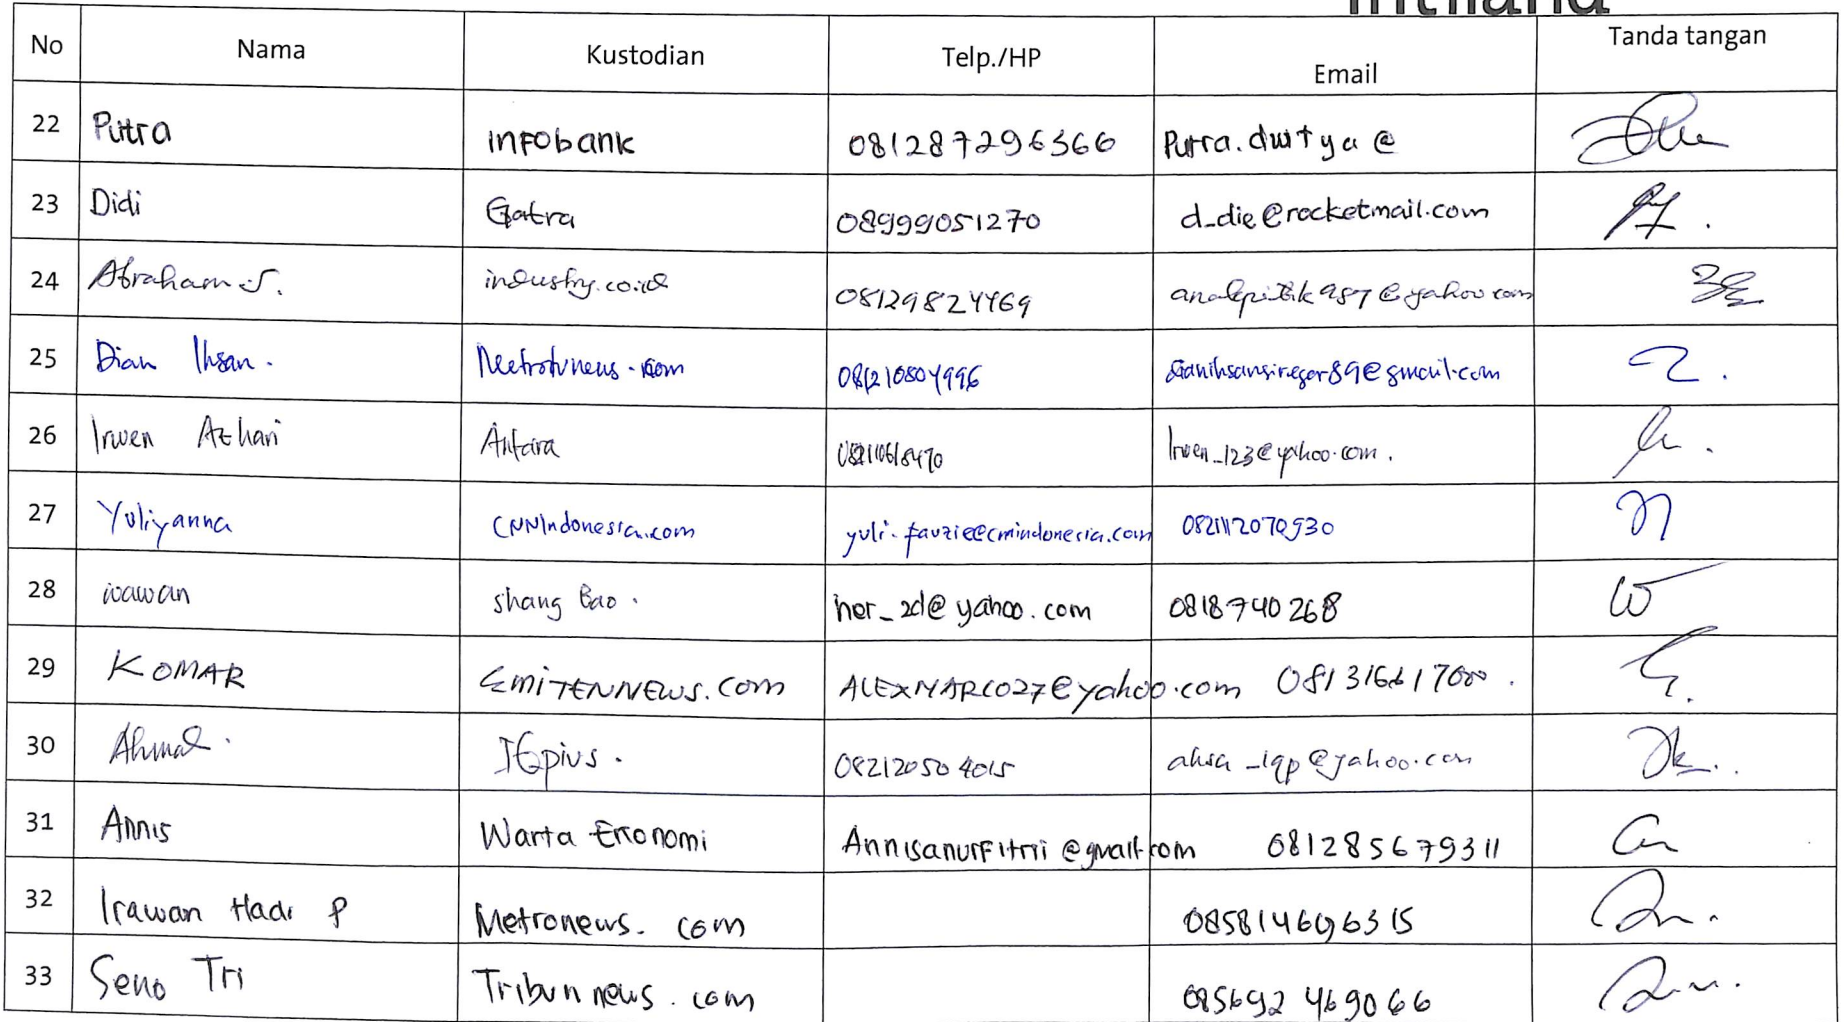 No Nama Kustodian Telp./HP Email Tanda tangan
22 Putra infobank 081287296366 Putra.dwitya@
23 Didi Gatra 08999051270 d_die@rocketmail.com
24 Abraham S. industry.co.id 08129824469
25 Dian Ihsan. Metrotvnews.com 081210804996 dianihsansiregar89@gmail.com
26 Irwen Azhari Antara Irwen_123@yahoo.com.
27 Yuliyanna CNNIndonesia.com yuli.fauzie@cnnindonesia.com 082112070930
28 wawan shang Bao. her_2d@yahoo.com 0818740268
29 KOMAR EmiTENNEWS.com ALEXMARCO27@yahoo.com
30 Ahmad. IGpius. 082120504015 ahsa_iqp@yahoo.com
31 Annis Warta Ekonomi Annisanurfitrii@gmail.com 081285679311
32 Irawan Hadi P Metronews.com 085814696315
33 Seno Tri Tribunnews.com 085692469066